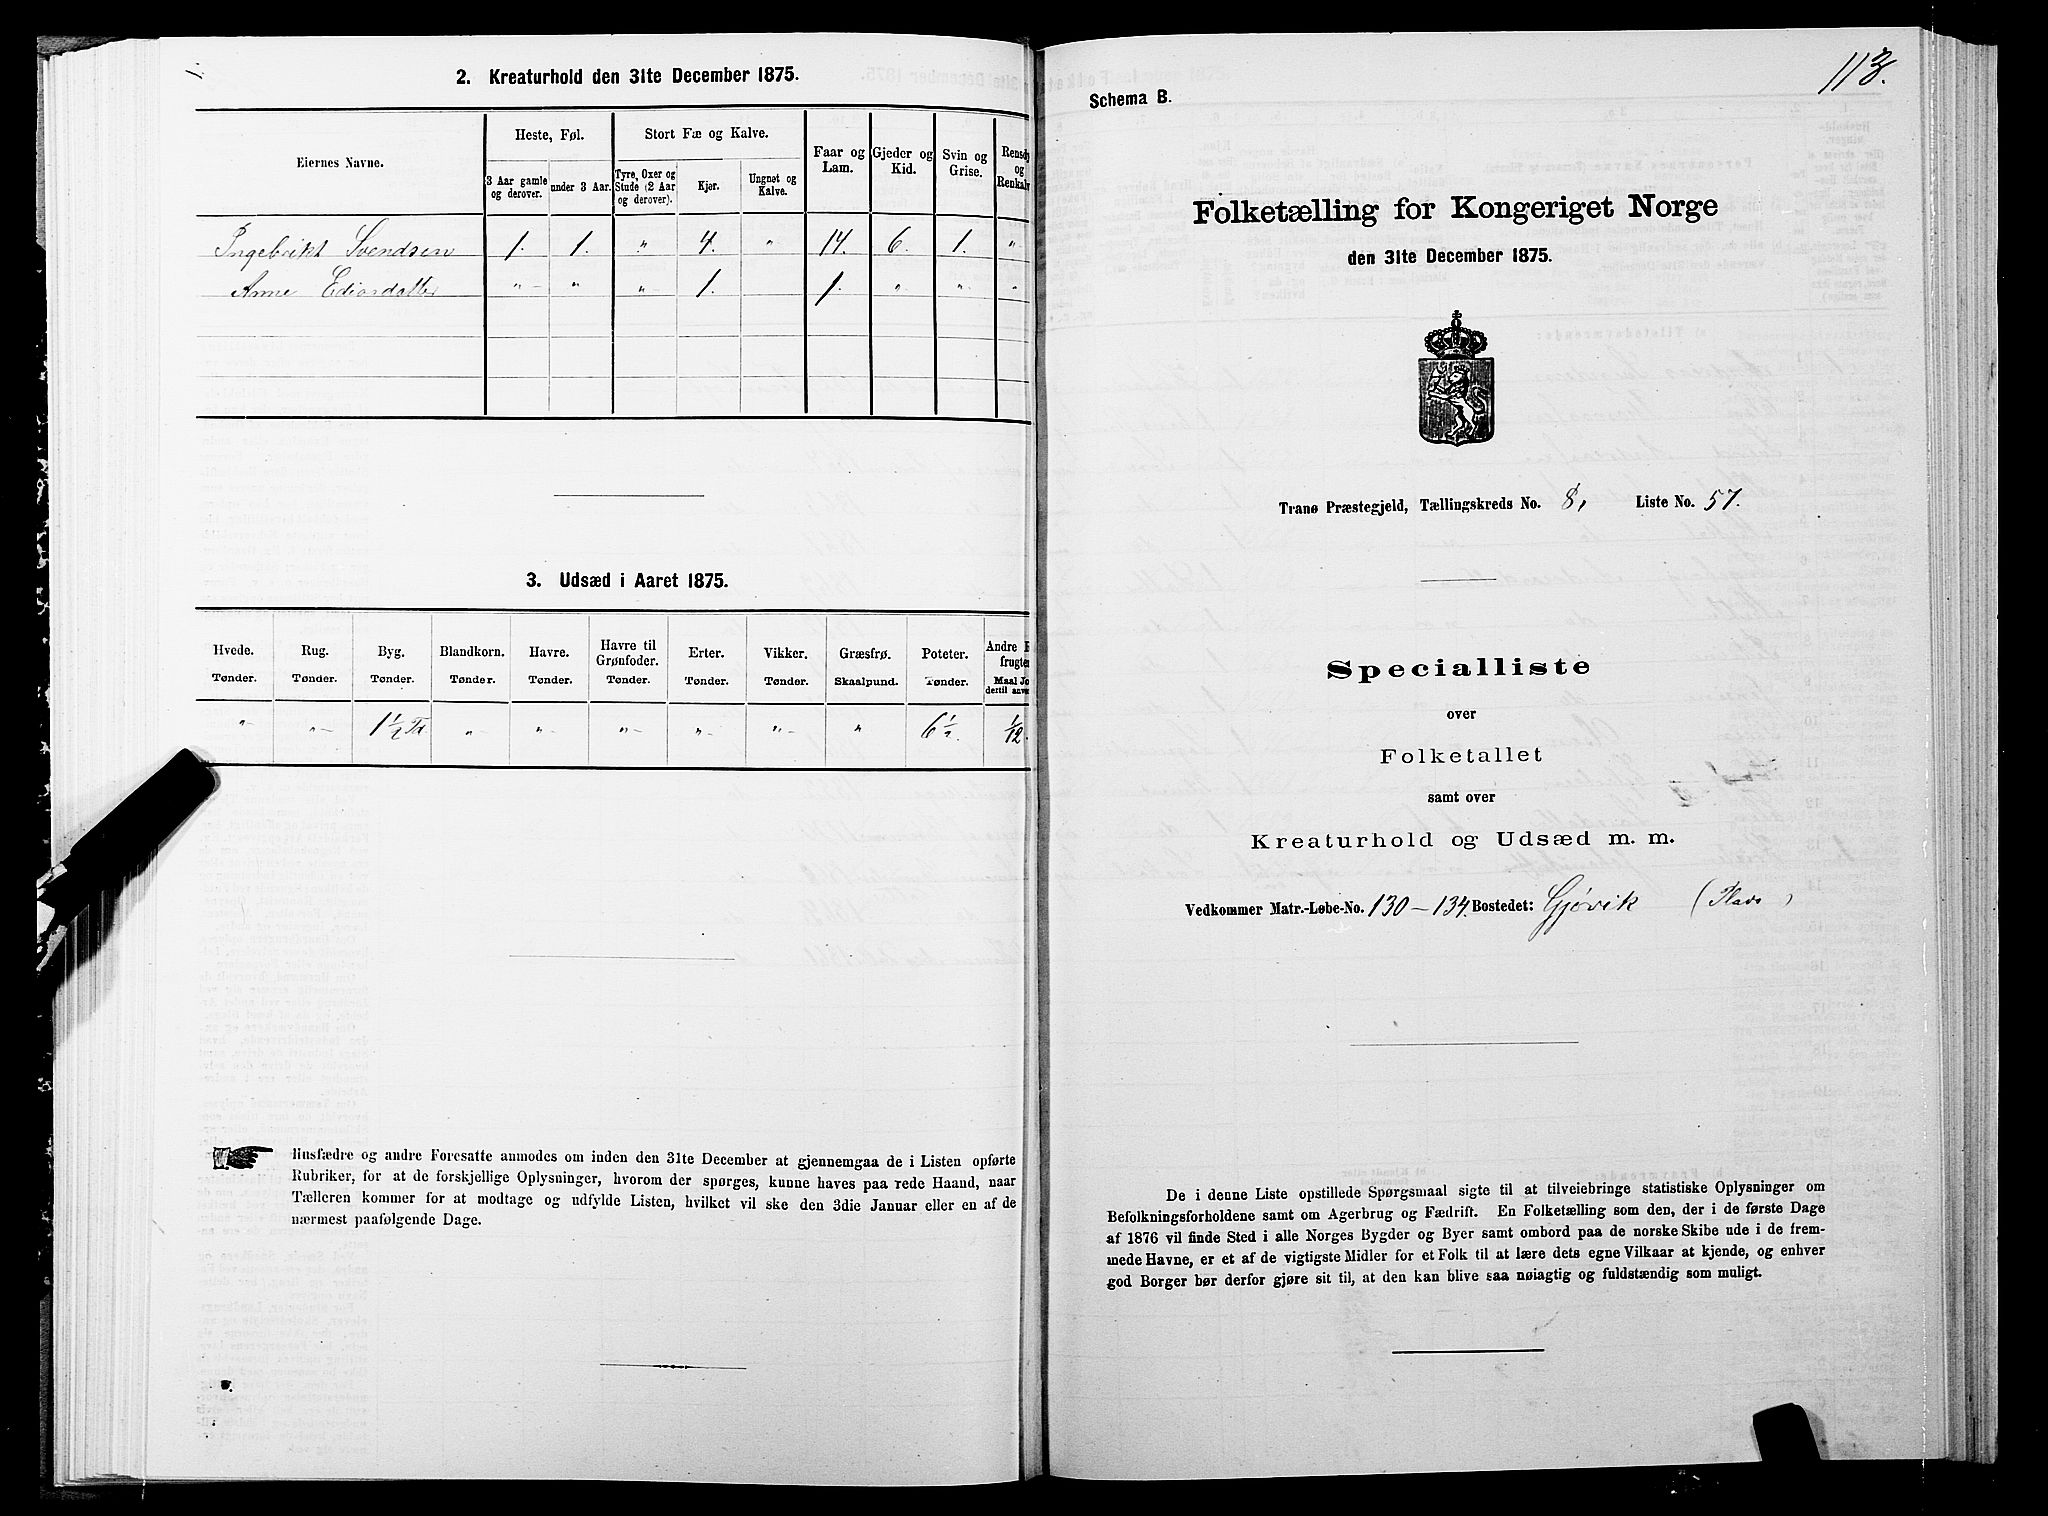 2. Kreaturhold den 31te December 1875.
Eiernes Navne.
Heste, Føl.
Stort Fæ og Kalve.
Faar og Lam.
Gjeder og Kid.
Svin og Grise.
Rensdy og Renkalv
3 Aar gamle og derover.
under 3 Aar.
Tyre, Oxer og Stude (2 Aar og derover).
Kjør.
Ungnøt og Kalve.
Ingebrikt Svendsen 1. 1. " 4. " 14. 6. 1. "
Anne Ediasdatter " " " 1. 1. " " "
3. Udsæd i Aaret 1875.
Hvede. Rug. Byg. Blandkorn. Havre. Havre til Grønfoder. Erter. Vikker. Græsfrø. Poteter. Andre R frugter
Tønder. Tønder. Tønder. Tønder. Tønder. Tønder. Tønder. Tønder. Skaalpund. Tønder. Maal Jo dertil anve
" " 1 1/2 Td " " " " " " 6 1/2. 1/12.
Husfædre og andre Foresatte anmodes om inden den 31te December at gjennemgaa de i Listen opførte
Rubriker, for at de forskjellige Oplysninger, hvorom der spørges, kunne haves paa rede Haand, naar
Tælleren kommer for at modtage og udfylde Listen, hvilket vil ske den 3die Januar eller en af de
nærmest paafølgende Dage.
113.
Schema B.
Folketælling for Kongeriget Norge
den 31te December 1875.
Tranø Præstegjeld, Tællingskreds No. 8, Liste No. 57.
Specialliste
over
Folketallet
samt over
Kreaturhold og Udsæd m. m.
Vedkommer Matr.-Løbe-No. 130-134. Bostedet: Gjøvik (Plads)
De i denne Liste opstillede Spørgsmaal sigte til at tilveiebringe statistiske Oplysninger om
Befolkningsforholdene samt om Agerbrug og Fædrift. En Folketælling som den, der i de første Dage
af 1876 vil finde Sted i alle Norges Bygder og Byer samt ombord paa de norske Skibe ude i de frem-
mede Havne, er et af de vigtigste Midler for et Folk til at lære dets egne Vilkaar at kjende, og enhver
god Borger bør derfor gjøre sit til, at den kan blive saa nøiagtig og fuldstændig som muligt.